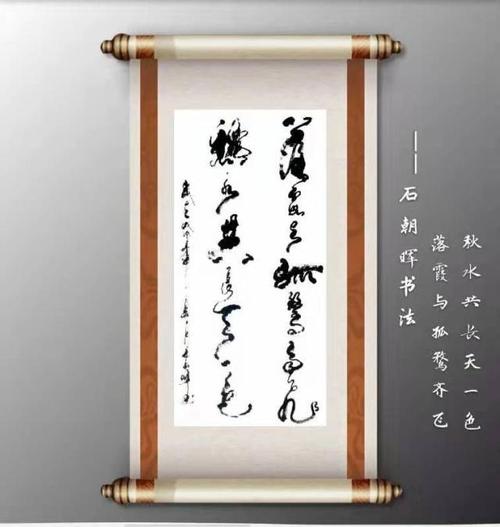 秋水共长天一色
落霞与孤鹜齐飞
——石朝晖书法
落霞与孤鹜齐飞
秋水共长天一色